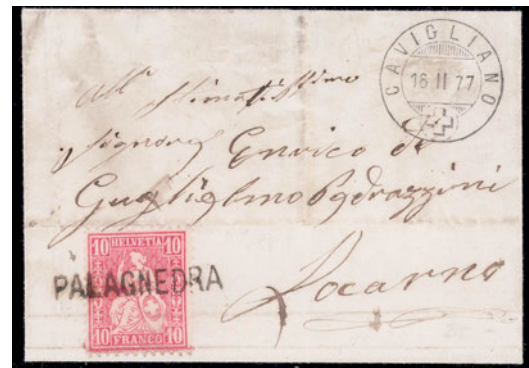 CAVIGLIANO
16 II 77
All' stimatissimo
Signore Enrico di
Guglielmo Pedrazzini
Locarno
10 HELVETIA 10
PALAGNEDRA
10 FRANCO 10